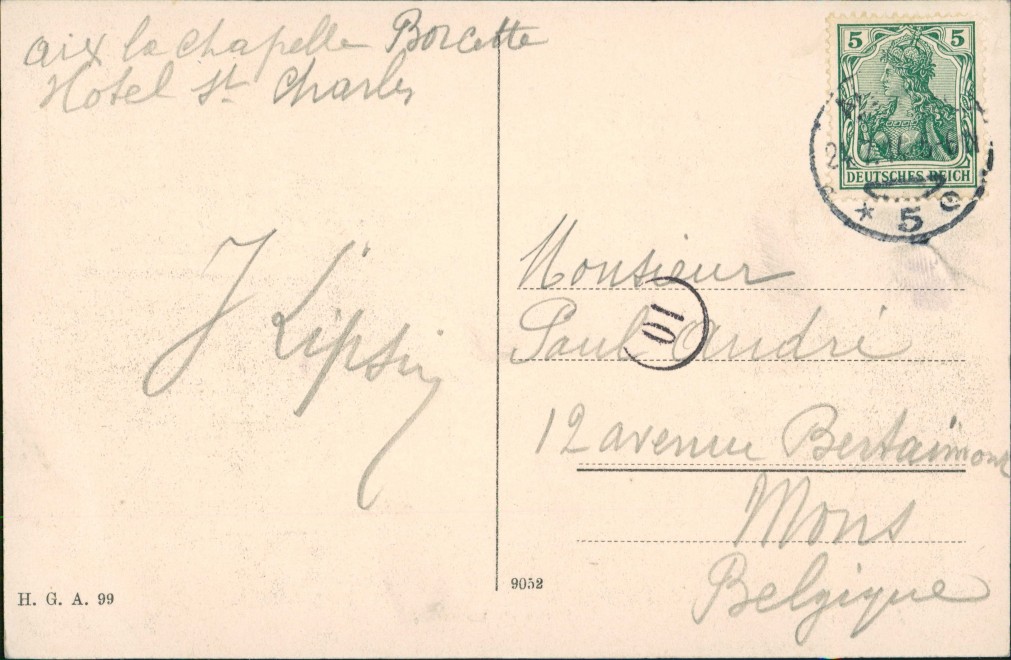 aix la chapelle Borcette
Hotel St Charles
J Lipsin
5 5
DEUTSCHES REICH
* 5 e
Monsieur
Paul André
10
12 avenue Bertaimont
Mons
Belgique
H. G. A. 99
9052